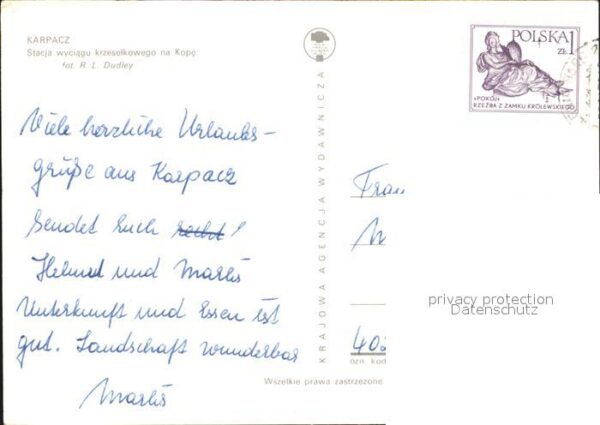 KARPACZ
Stacja wyciągu krzesełkowego na Kopę
fot. R. L. Dudley
Viele herzliche Urlaubs-
grüße aus Karpacz
sendet Euch recht!
Helmut und Marlis
Unterkunft und Essen ist
gut. Landschaft wunderbar
Marlis
KRAJOWA AGENCJA WYDAWNICZA
Wszelkie prawa zastrzeżone
POLSKA
zł 1
«POKÓJ»
RZEŹBA Z ZAMKU KRÓLEWSKIEGO
Frau
402
ozn. kod
privacy protection
Datenschutz